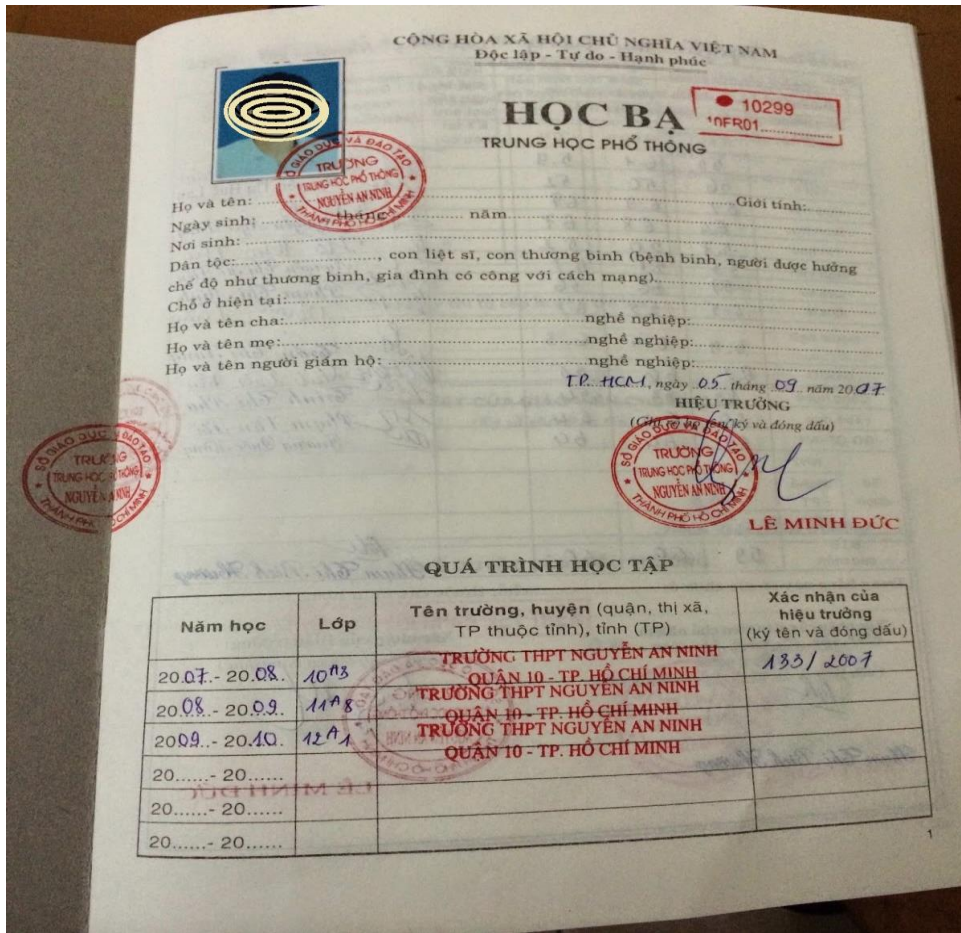 CỘNG HÒA XÃ HỘI CHỦ NGHĨA VIỆT NAM
Độc lập - Tự do - Hạnh phúc
HỌC BẠ
10299
10FR01
TRUNG HỌC PHỔ THÔNG
SỞ GIÁO DỤC VÀ ĐÀO TẠO
TRƯỜNG
TRUNG HỌC PHỔ THÔNG
NGUYỄN AN NINH
THÀNH PHỐ HỒ CHÍ MINH
Họ và tên: Giới tính:
Ngày sinh: tháng năm
Nơi sinh:
Dân tộc:, con liệt sĩ, con thương binh (bệnh binh, người được hưởng
chế độ như thương binh, gia đình có công với cách mạng)
Chỗ ở hiện tại:
Họ và tên cha: nghề nghiệp:
Họ và tên mẹ: nghề nghiệp:
Họ và tên người giám hộ: nghề nghiệp:
T.P. HCM, ngày 05 tháng 09 năm 2007
HIỆU TRƯỞNG
ký và đóng dấu)
SỞ GIÁO DỤC VÀ ĐÀO TẠO
TRƯỜNG
TRUNG HỌC PHỔ THÔNG
NGUYỄN AN NINH
THÀNH PHỐ HỒ CHÍ MINH
SỞ GIÁO DỤC VÀ ĐÀO TẠO
TRƯỜNG
TRUNG HỌC PHỔ THÔNG
NGUYỄN AN NINH
THÀNH PHỐ HỒ CHÍ MINH
LÊ MINH ĐỨC
QUÁ TRÌNH HỌC TẬP
Năm học Lớp Tên trường, huyện (quận, thị xã, TP thuộc tỉnh), tỉnh (TP) Xác nhận của hiệu trưởng (ký tên và đóng dấu)
2007.- 2008. 10A3 TRƯỜNG THPT NGUYỄN AN NINH 133/2007
QUẬN 10 - TP. HỒ CHÍ MINH
2008.- 2009. 11A8 TRƯỜNG THPT NGUYỄN AN NINH
QUẬN 10 - TP. HỒ CHÍ MINH
2009..- 2010. 12A1 TRƯỜNG THPT NGUYỄN AN NINH
QUẬN 10 - TP. HỒ CHÍ MINH
20......- 20......
20......- 20......
20......- 20......
1